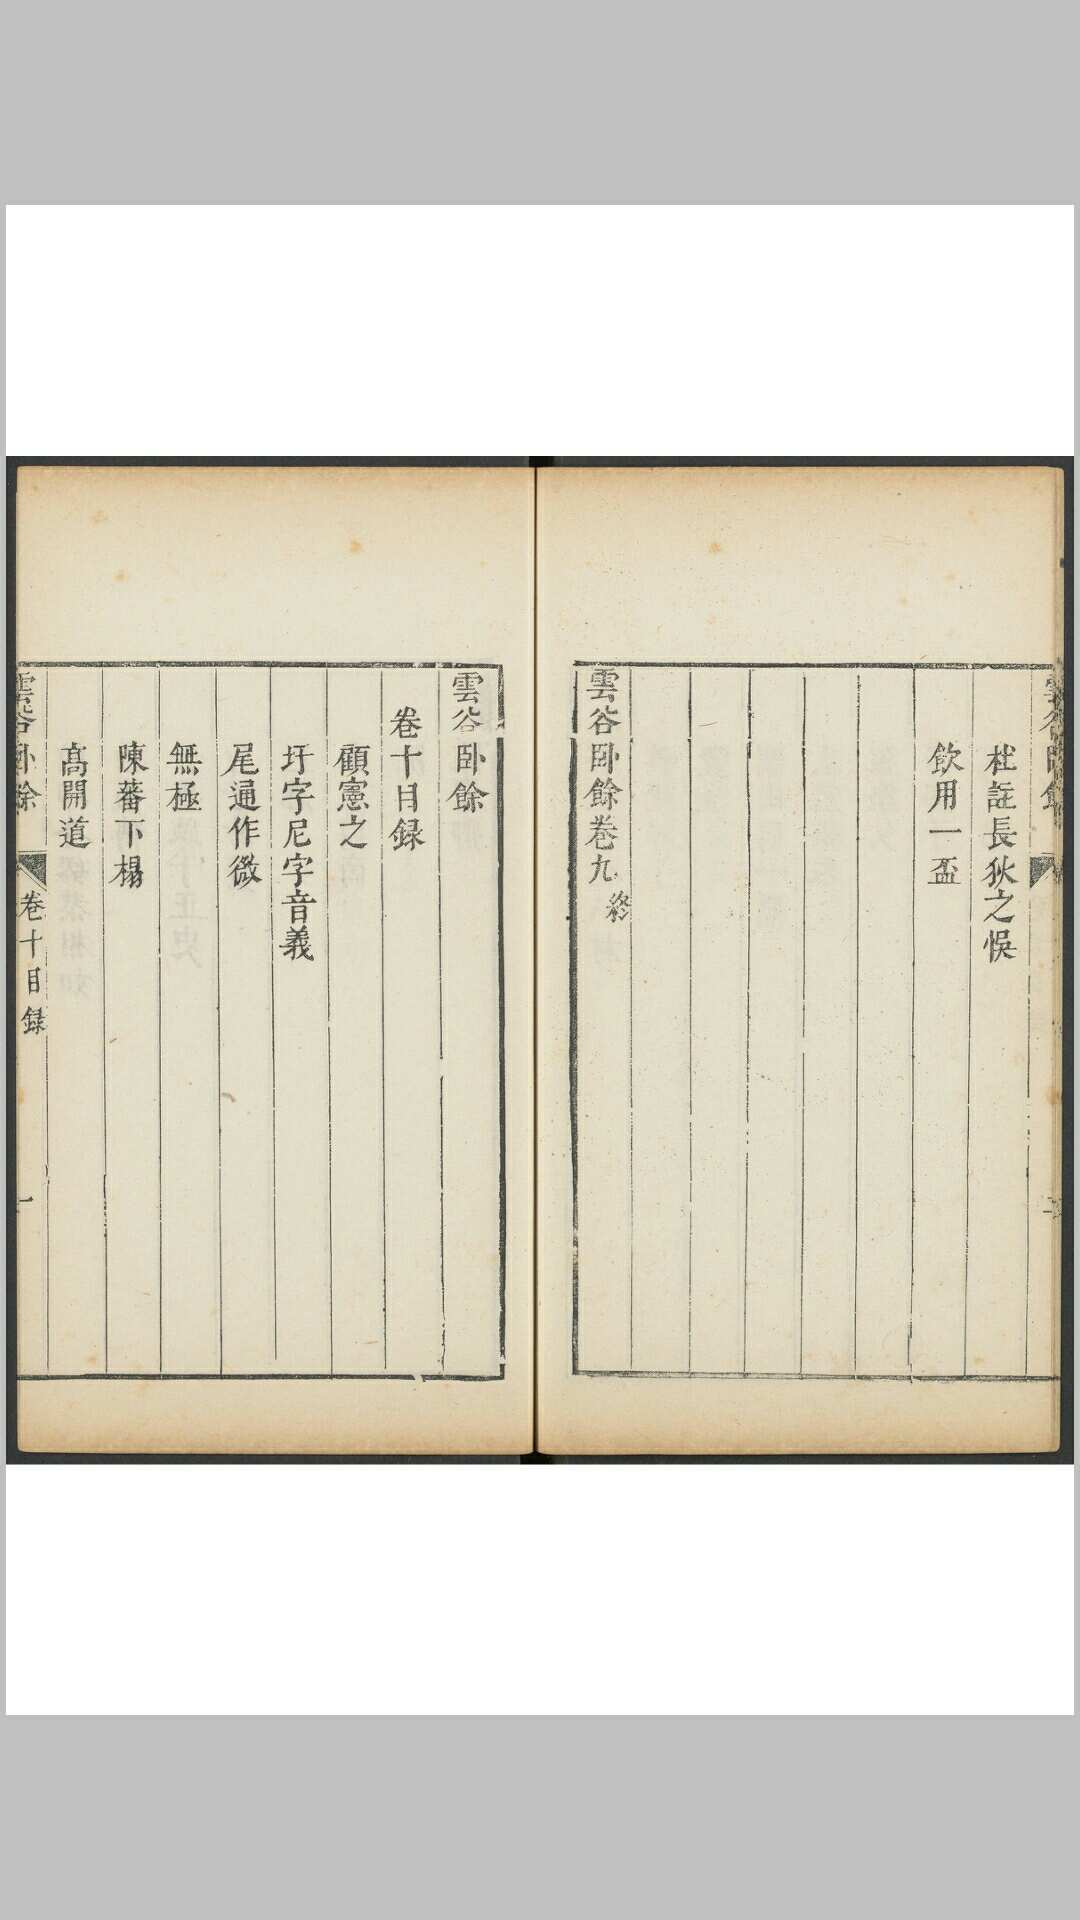 杜註長狄之悞
飲用一盃
雲谷卧餘卷九終
雲谷卧餘
卷十目録
顧憲之
圩字尼字音義
尾通作微
無極
陳蕃下榻
高開道
雲谷卧餘 卷十目録 一